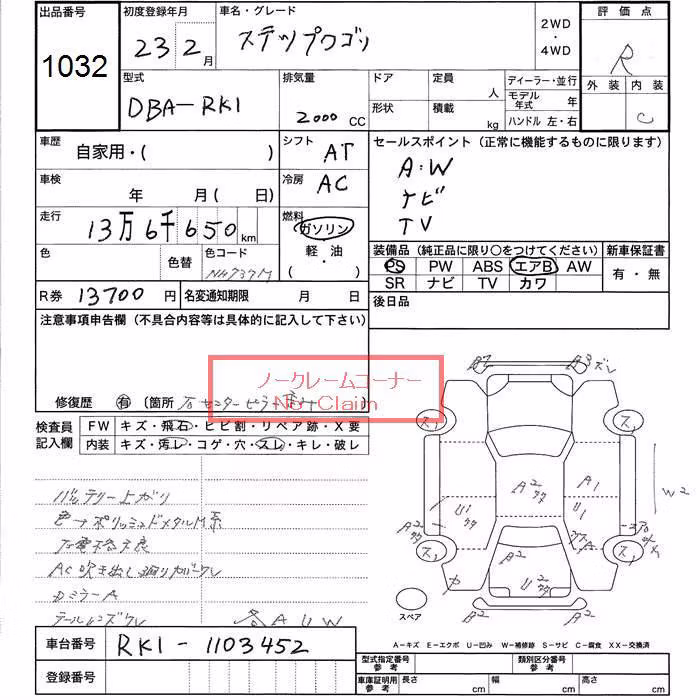 出品番号
1032
初度登録年月
23 2 月
車名・グレード
ステップワゴン
2WD
・
4WD
評価点
R
外装 内装
C
型式
DBA-RK1
排気量
2000 CC
ドア
形状
定員
人
積載
kg
ディーラー・並行
モデル年式 年
ハンドル 左・右
車歴
自家用・( )
シフト
AT
車検
年 月 ( 日)
冷房
AC
走行
13万6千650 km
燃料
ガソリン
・
軽・油
( )
色
色替
色コード
NH737M
セールスポイント (正常に機能するものに限ります)
A:W
ナビ
TV
装備品 (純正品に限り○をつけてください)
PS PW ABS エアB AW
SR ナビ TV カワ
新車保証書
有・無
R券 13700 円
名変通知期限 月 日
後日品
注意事項申告欄 (不具合内容等は具体的に記入して下さい)
ノークレームコーナー
No Claim
修復歴 有 〔箇所 右センターピラー
検査員記入欄
FW キズ・飛石・ヒビ割・リペア跡・X要
内装 キズ・汚レ・コゲ・穴・スレ・キレ・破レ
バッテリー上がり
色→ポリッシュドメタルM系
AC吹き出し
DミラーA
テールレンズワレ
各AUW
車台番号 RK1-1103452
登録番号
A2
A1
U1
W2
スペア
A-キズ E-エクボ U-凹み W-補修跡 S-サビ C-腐食 XX-交換済
型式指定番号 参考
類別区分番号 参考
車庫証明用 参考
長さ cm
幅 cm
高さ cm